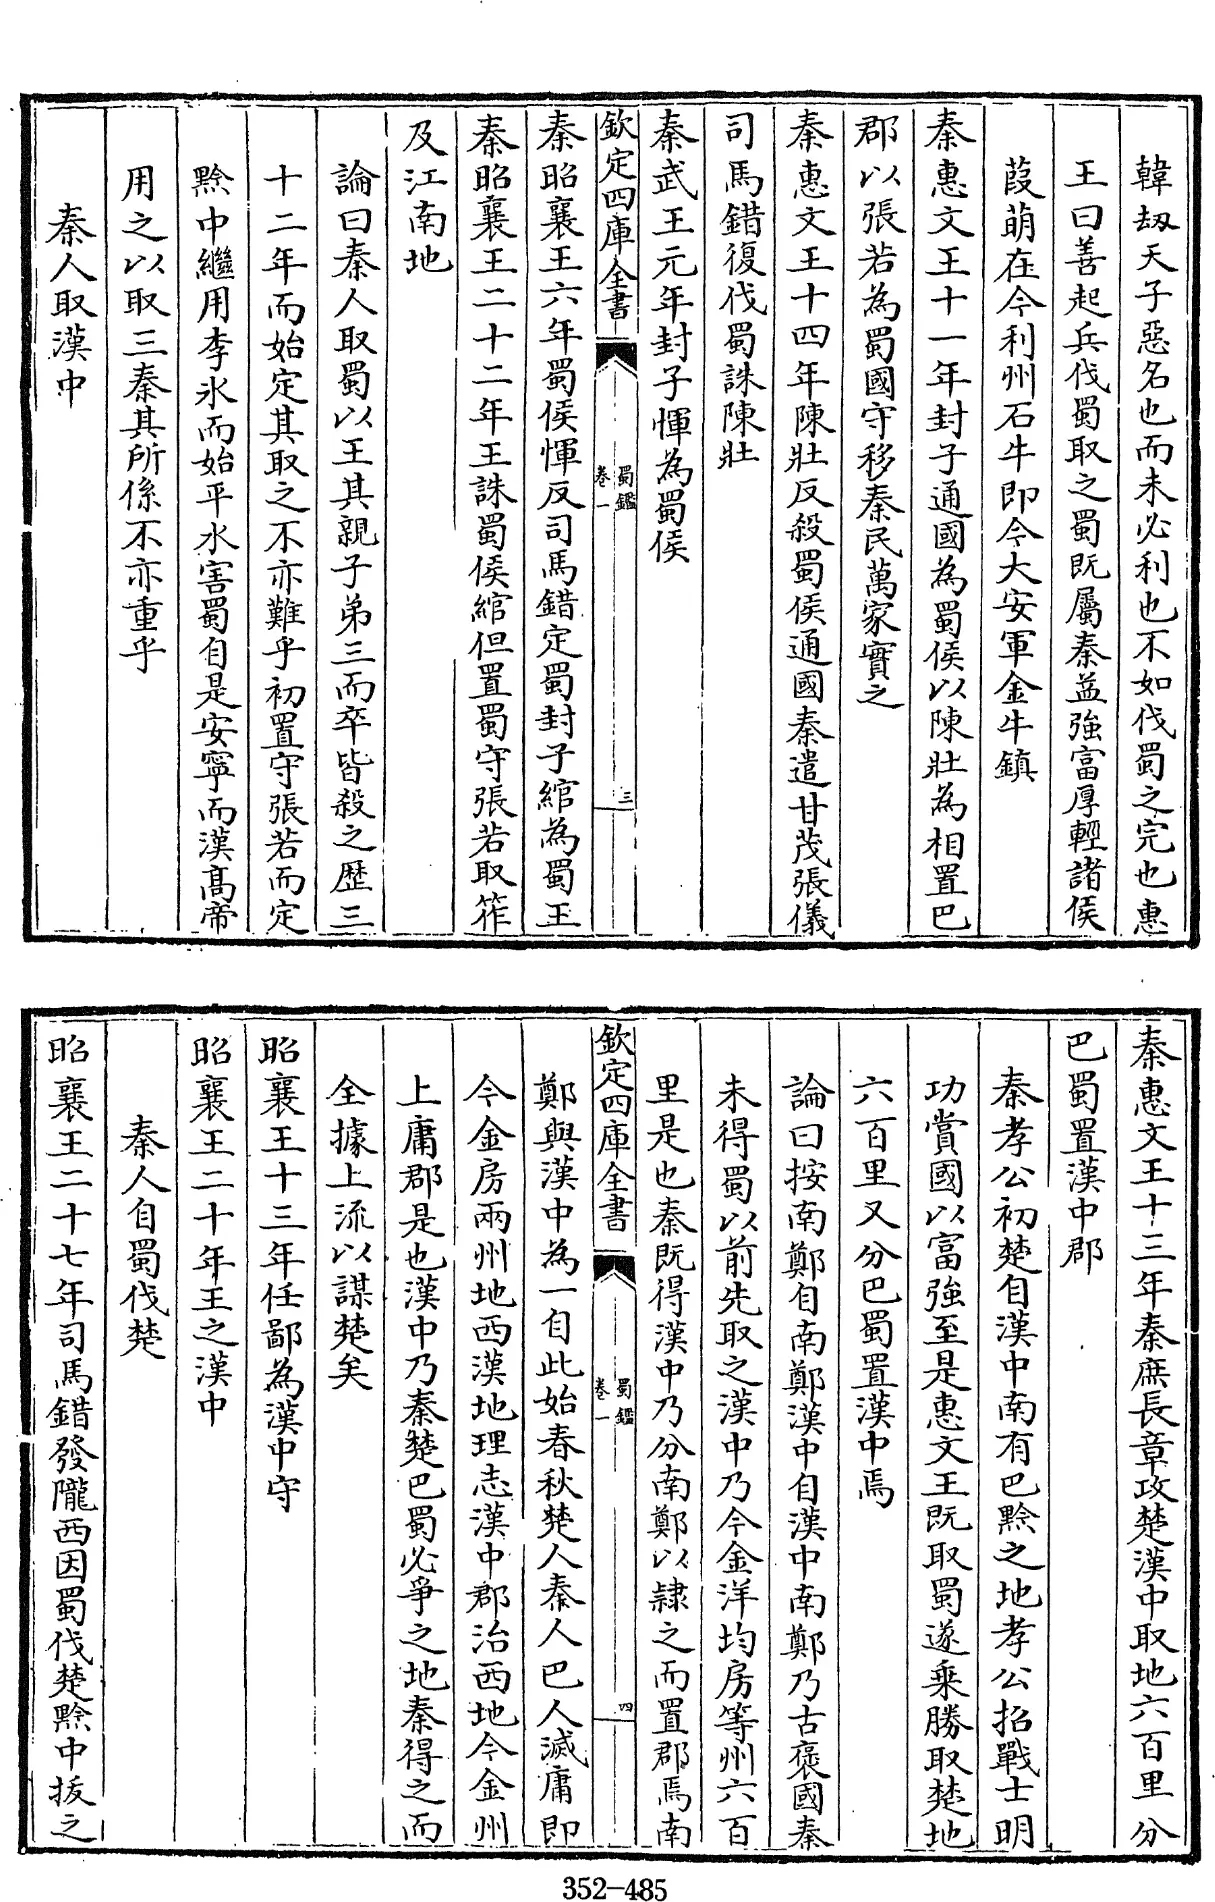 韓刼天子惡名也而未必利也不如伐蜀之完也惠
王曰善起兵伐蜀取之蜀既屬秦益強富厚輕諸侯
葭萌在今利州石牛即今大安軍金牛鎮
秦惠文王十一年封子通國為蜀侯以陳壯為相置巴
郡以張若為蜀國守移秦民萬家實之
秦惠文王十四年陳壯反殺蜀侯通國秦遣甘茂張儀
司馬錯復伐蜀誅陳壯
秦武王元年封子惲為蜀侯
欽定四庫全書
蜀鑑
卷一
三
秦昭襄王六年蜀侯惲反司馬錯定蜀封子綰為蜀王
秦昭襄王二十二年王誅蜀侯綰但置蜀守張若取筰
及江南地
論曰秦人取蜀以王其親子弟三而卒皆殺之歷三
十二年而始定其取之不亦難乎初置守張若而定
黔中繼用李氷而始平水害蜀自是安寧而漢高帝
用之以取三秦其所係不亦重乎
秦人取漢中
秦惠文王十三年秦庶長章攻楚漢中取地六百里分
巴蜀置漢中郡
秦孝公初楚自漢中南有巴黔之地孝公招戰士明
功賞國以富強至是惠文王既取蜀遂乗勝取楚地
六百里又分巴蜀置漢中焉
論曰按南鄭自南鄭漢中自漢中南鄭乃古褒國秦
未得蜀以前先取之漢中乃今金洋均房等州六百
里是也秦既得漢中乃分南鄭以隸之而置郡焉南
欽定四庫全書
蜀鑑
卷一
四
鄭與漢中為一自此始春秋楚人秦人巴人滅庸即
今金房兩州地西漢地理志漢中郡治西地今金州
上庸郡是也漢中乃秦楚巴蜀必爭之地秦得之而
全據上流以謀楚矣
昭襄王十三年任鄙為漢中守
昭襄王二十年王之漢中
秦人自蜀伐楚
昭襄王二十七年司馬錯發隴西因蜀伐楚黔中拔之
352-485